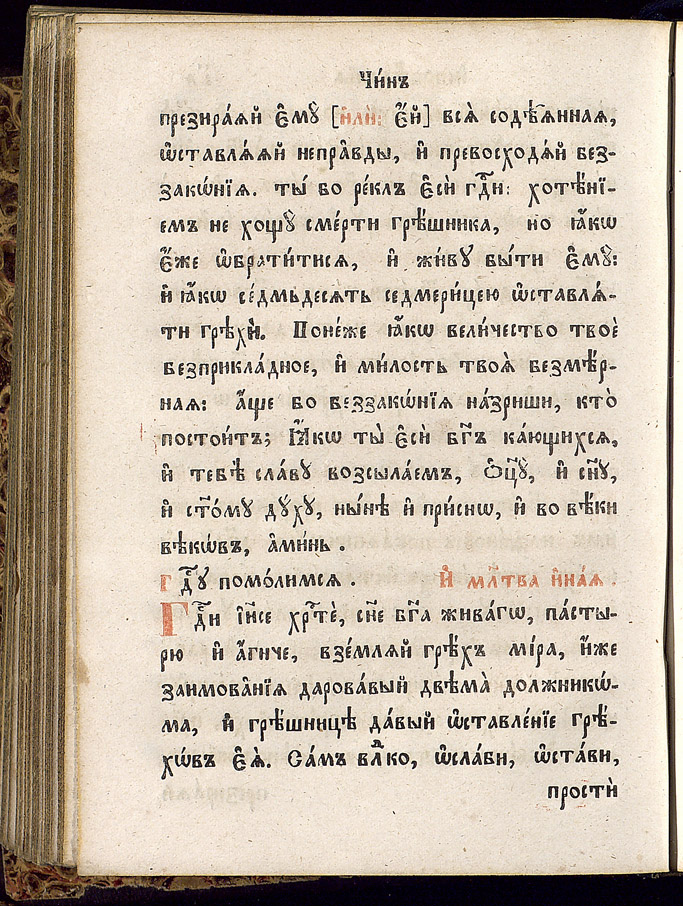 Чи́нъ
презира́ѧй є҆мꙋ̀ [и҆лѝ: є҆́й] всѧ̑ содѣ̑ѧннаѧ,
ѡ҆ставлѧ́ѧй непра̑вды, и҆ превосходѧ́й без-
закѡ́нїѧ. ты́ бо ре́клъ є҆сѝ гдⷭ҇и: хотѣ́нї-
емъ не хощꙋ̀ сме́рти грѣ́шника, но ꙗ҆́кѡ
є҆́же ѡ҆брати́тисѧ, и҆ жи́вꙋ бы́ти є҆мꙋ̀:
и҆ ꙗ҆́кѡ се́дмьдесѧть седмери́цею ѡ҆ставлѧ́-
ти грѣхѝ. Поне́же ꙗ҆́кѡ вели́чество твоѐ
безприкла́дное, и҆ ми́лость твоѧ̀ безмѣ́р-
наѧ: а҆́ще бо беззакѡ́нїѧ на́зриши, кто̀
постои́тъ; Ꙗ҆́кѡ ты̀ є҆сѝ бг҃ъ ка́ющихсѧ,
и҆ тебѣ̀ сла́вꙋ возсыла́емъ, ѻ҆ц҃ꙋ̀, и҆ сн҃ꙋ,
и҆ ст҃о́мꙋ дх҃ꙋ, ны́нѣ и҆ при́снѡ, и҆ во вѣ́ки
вѣкѡ́въ, а҆ми́нь.
Гдⷭ҇ꙋ помо́лимсѧ. И҆ мл҃тва и҆на́ѧ.
Гдⷭ҇и і҆и҃се хрⷭ҇тѐ, сн҃е бг҃а жива́гѡ, па́сты-
рю и҆ а҆́гнче, взе́млѧй грѣ́хъ мі́ра, и҆́же
заимова̑нїѧ дарова́вый двѣма̀ должникѡ́-
ма, и҆ грѣ́шницѣ да́вый ѡ҆ставле́нїе грѣ-
хѡ́въ є҆ѧ̀. Са́мъ влⷣко, ѡ҆сла́би, ѡ҆ста́ви,
простѝ